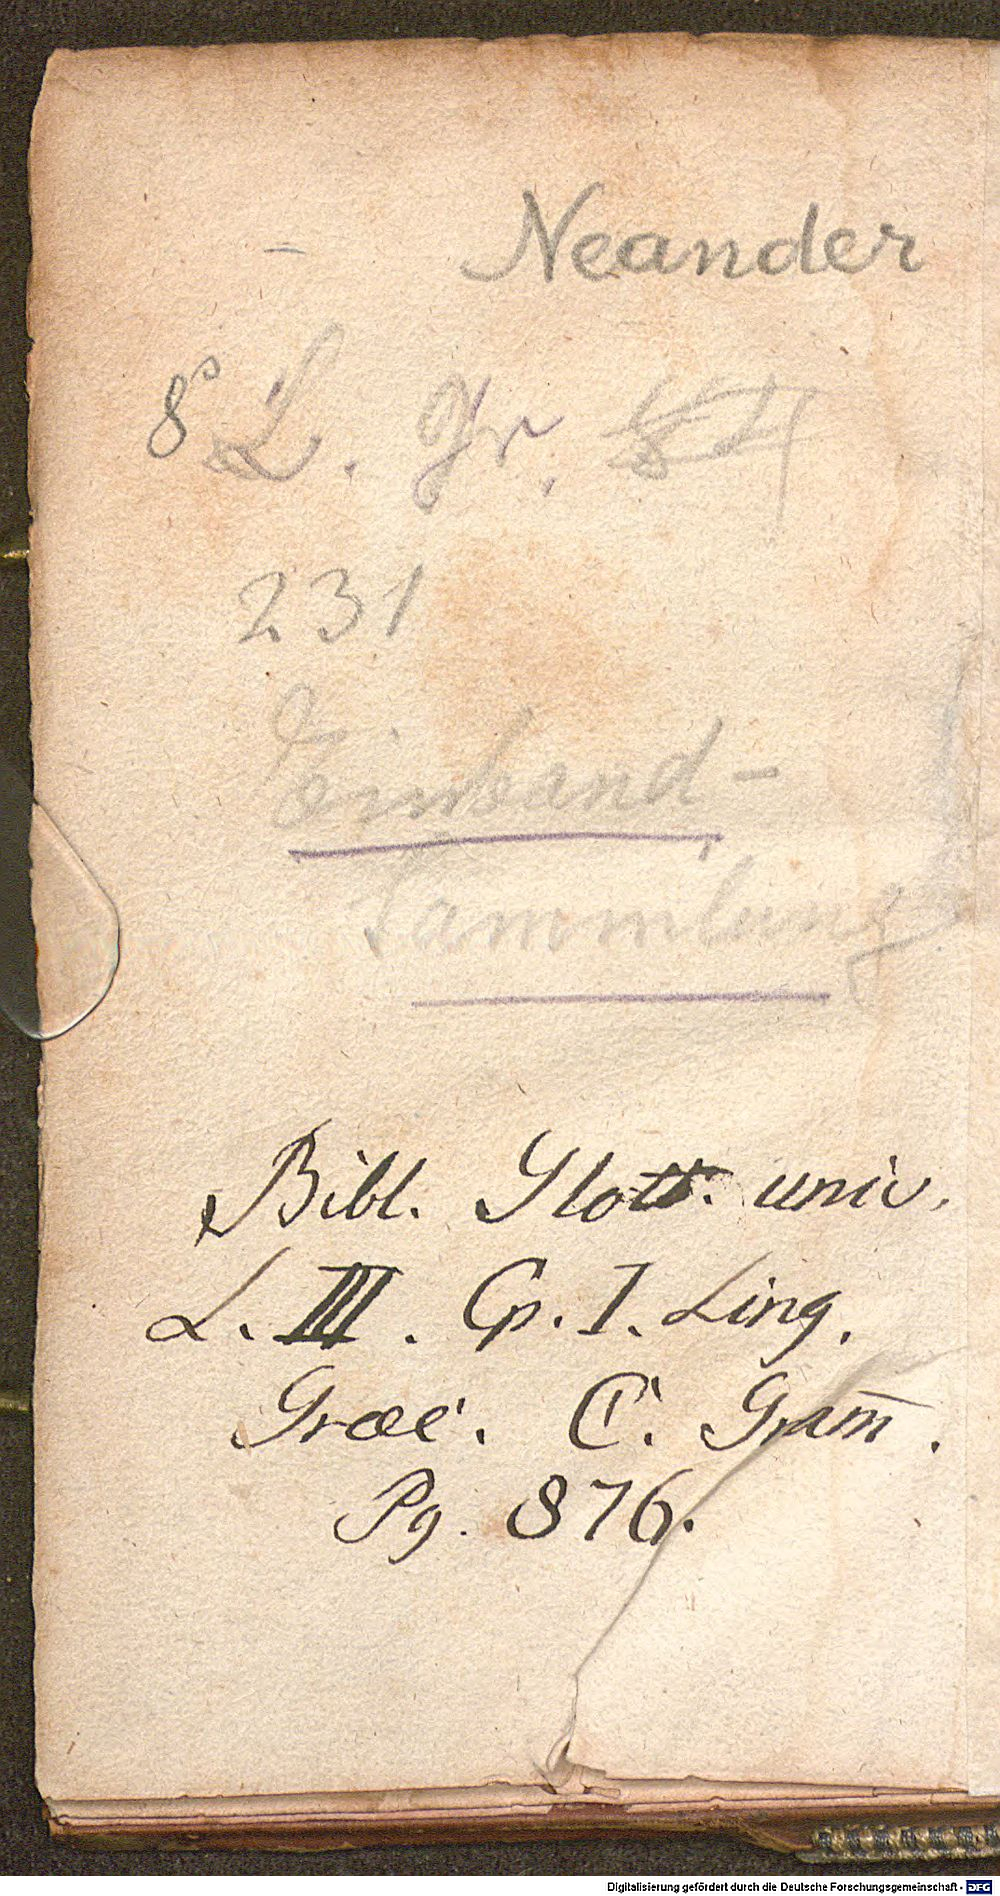 Neander
8° L. Gr.
231
Einband-
Sammlung
Bibl. Glott. univ.
L. III. Cp. I. Ling.
Graec. C. Gram̄.
Pg. 876.
Digitalisierung gefördert durch die Deutsche Forschungsgemeinschaft - DFG